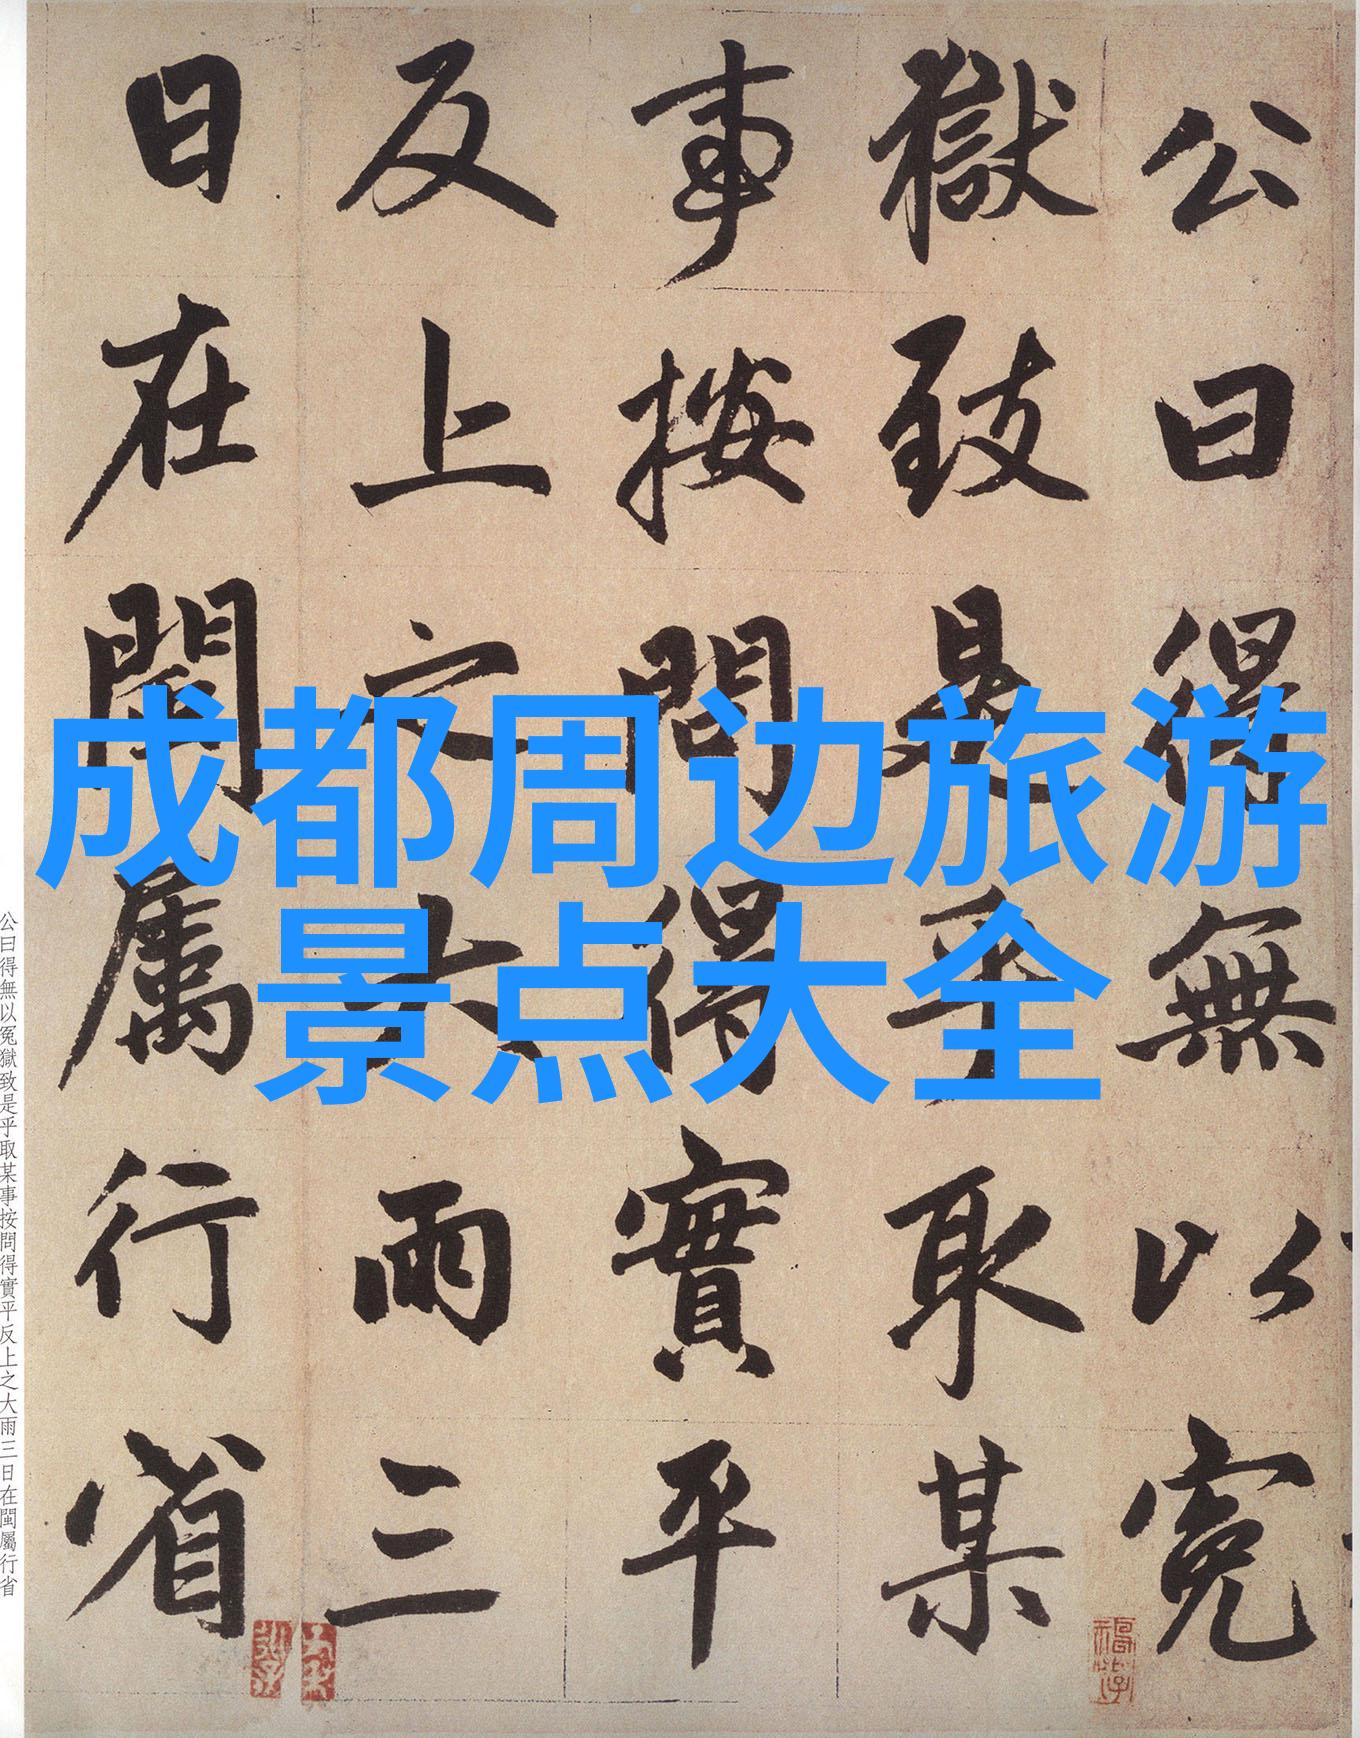 公曰得無以冤
獄致是乎取某
事按問得實平
反上之大雨三
日在閩屬行省
成都周边旅游
景点大全
公曰得無以冤獄致是乎取某事按問得實平反上之大雨三日在閩屬行省